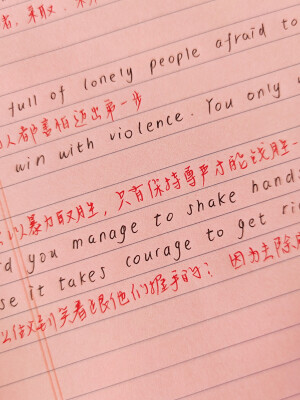 者，采取
full of lonely people afraid to
人都害怕迈出第一步
win with violence. You only
以暴力取胜，只有保持尊严才能战胜一
d you manage to shake hand
se it takes courage to get ri
笑着跟他们握手的； 因为去除